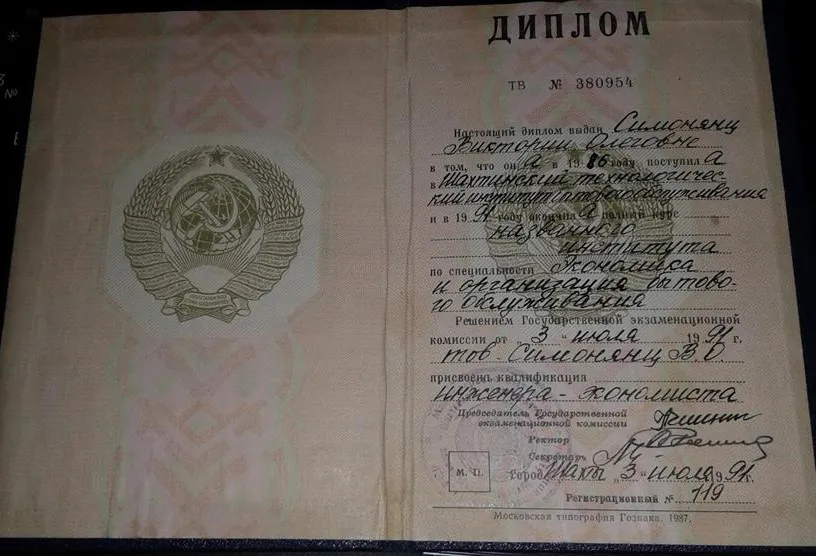 ДИПЛОМ
ТВ № 380954
Настоящий диплом выдан Симонянц
Виктории Олеговне
в том, что он а в 19 86 году поступил а
в Шахтинский технологичес
кий институт бытового обслуживания
и в 19 91 году окончил а полный курс
названного
института
по специальности Экономика
и организация бытово-
го обслуживания
Решением Государственной экзаменационной
комиссии от „ 3 “ июля 19 91 г.
тов. Симонянц В.О.
присвоена квалификация
инженера-экономиста
Председатель Государственной
экзаменационной комиссии
Ректор
Секретарь
М. П.
Город Шахты „ 3 “ июля 19 91 г.
Регистрационный № 119
Московская типография Гознака. 1987.